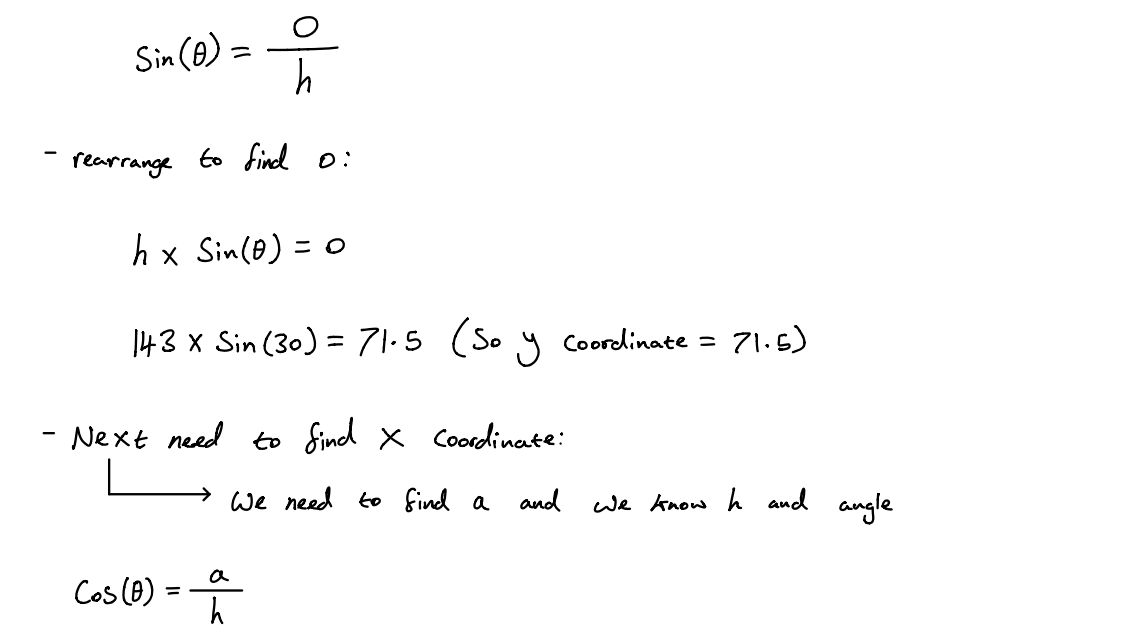 Sin(θ) = o/h
- rearrange to find o:
h x Sin(θ) = o
143 x Sin(30) = 71.5 (So y coordinate = 71.5)
- Next need to find x coordinate:
We need to find a and we know h and angle
Cos(θ) = a/h